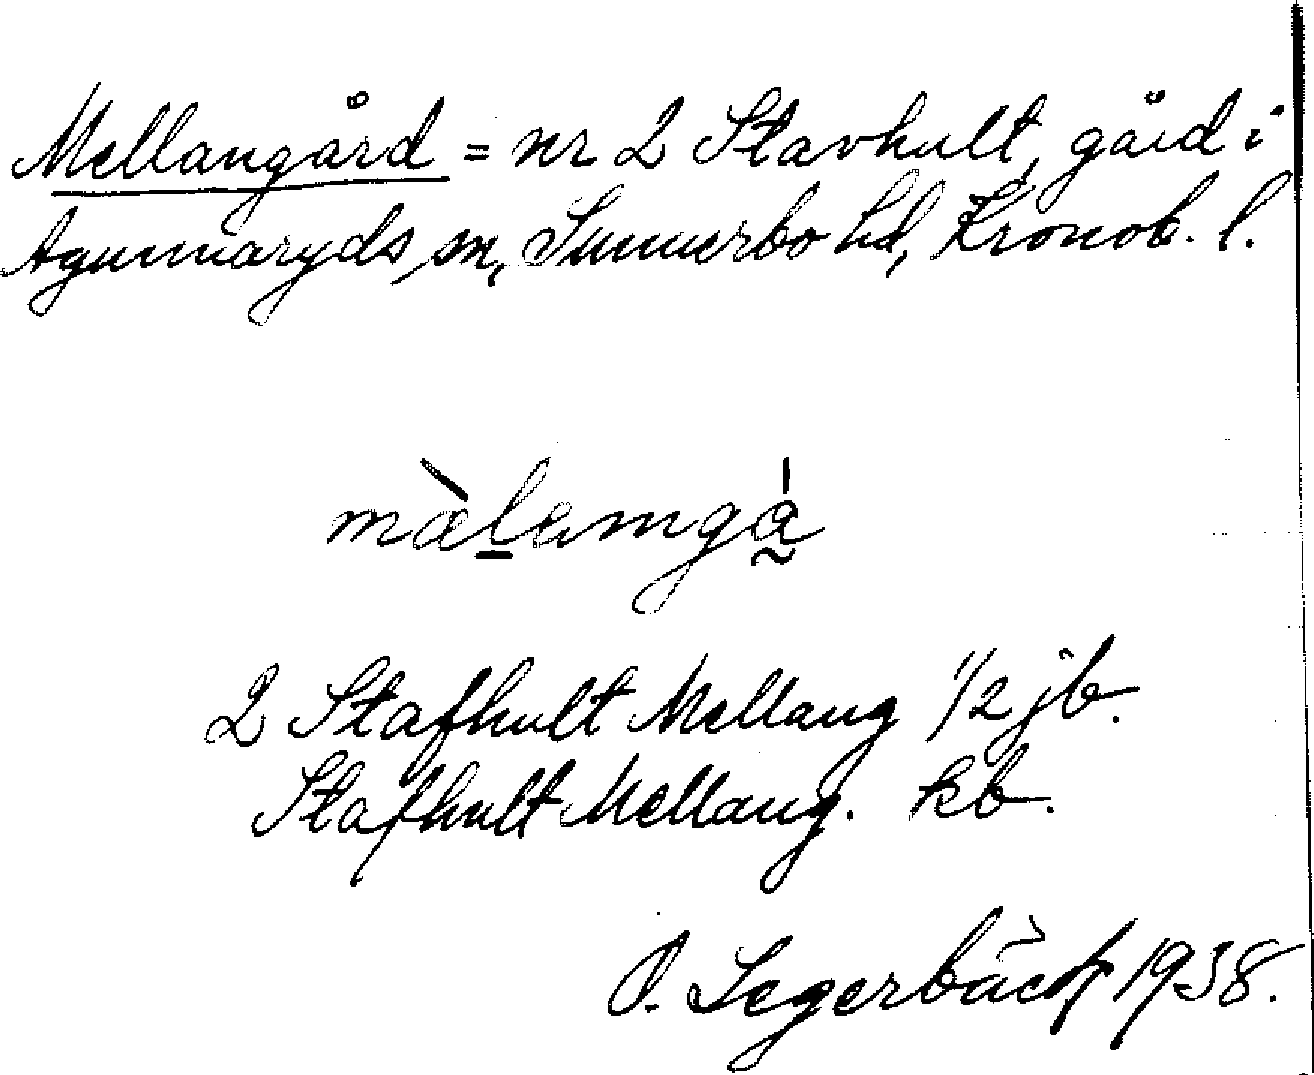 Mellangård = nr 2 Stavhult, gård i
Agunnaryds sn, Sunnerbo hd, Kronob. l.
mæ̀l̲amgá̰
2 Stafhult Mellang 1/2 jb.
Stafhult Mellang. kb.
O. Segerbäck 1938.